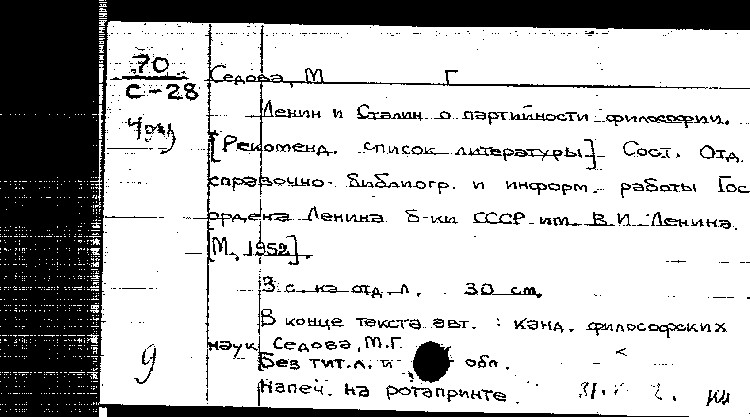 70
С-28
Седова, М Г
Ленин и Сталин о партийности философии.
[Рекоменд. список литературы]. Сост. Отд.
справочно-библиогр. и информ. работы Гос
ордена Ленина б-ки СССР им. В.И. Ленина.
[М, 1952].
3 с. на отд. л. 30 см.
В конце текста авт.: канд. философских
наук Седова, М.Г.
Без тит.л. и обл.
Напеч. на ротапринте.
9